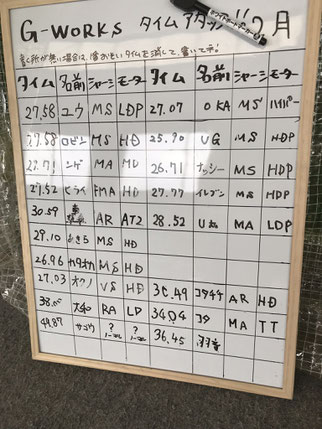 G-WORKS タイムアタック 2月
書く所が無い場合は、1番おそいタイムを消して、書いて下さい!
タイム 名前 シャーシ モーター タイム 名前 シャーシ モーター
27.58 ユウ MS LDP 27.07 OKA MS ハイパー
27.58 ロビン MS HD 25.90 UG MS HDP
27.71 MA MD 26.71 ナッシー MS HDP
27.52 ヒライ FMA HD 27.77 イレブン MS HDP
30.59 AR AT2 28.52 MA LDP
29.10 あきら MS HD
26.96 カタオカ MS HD
27.03 オクノ VS HD 30.49 コタケチ AR HD
38.05 大和 RA LD 34.04 コタ MA TT
49.87 サコウ ? ノーマル ? ノーマル 36.45